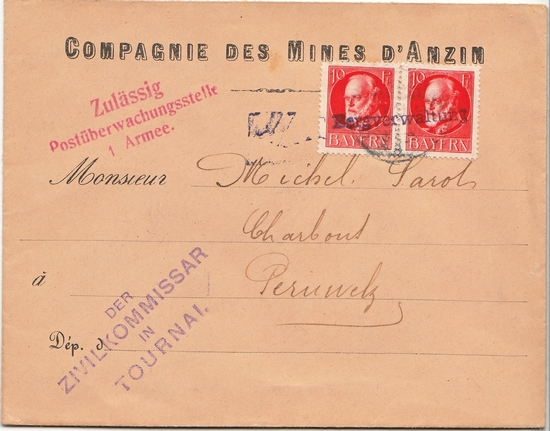 COMPAGNIE DES MINES D'ANZIN
10 Pf 10 Pf
Bergverwaltung
BAYERN BAYERN
Zulässig
Postüberwachungsstelle
1 Armee.
Monsieur Michel
Charbont
à Peruwelz
Dép. d
DER
ZIVILKOMMISSAR
IN
TOURNAI.